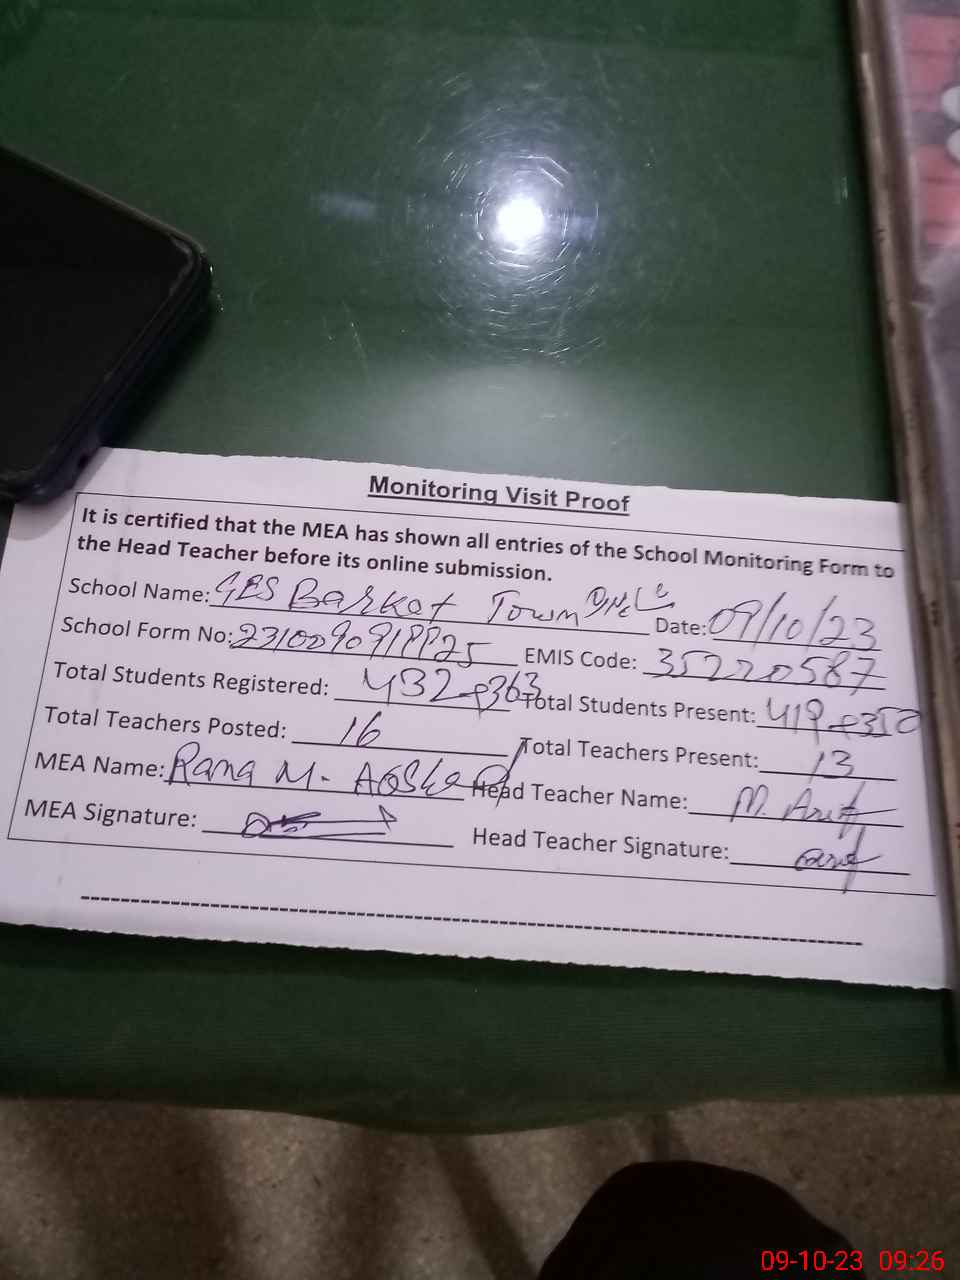 Monitoring Visit Proof
It is certified that the MEA has shown all entries of the School Monitoring Form to
the Head Teacher before its online submission.
School Name: GES Barkat Town Date: 09/10/23
School Form No: EMIS Code: 35220587
Total Students Registered: 432+363 Total Students Present: 419+350
Total Teachers Posted: 16 Total Teachers Present: 13
MEA Name: Rana M. Head Teacher Name: M. Arif
MEA Signature: Head Teacher Signature: Arif
09-10-23 09:26